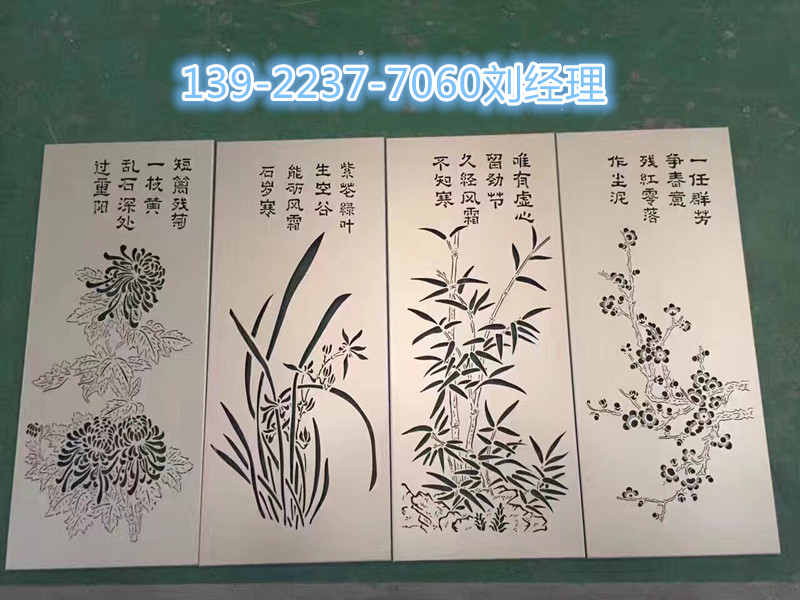 139-2237-7060刘经理
一任群芳
争春意
残紅零落
作尘泥
唯有虚心
留劲节
久经风霜
不知寒
紫花緑叶
生空谷
能斫风霜
石岁寒
短篱残菊
一枝黄
乱石深处
过重阳